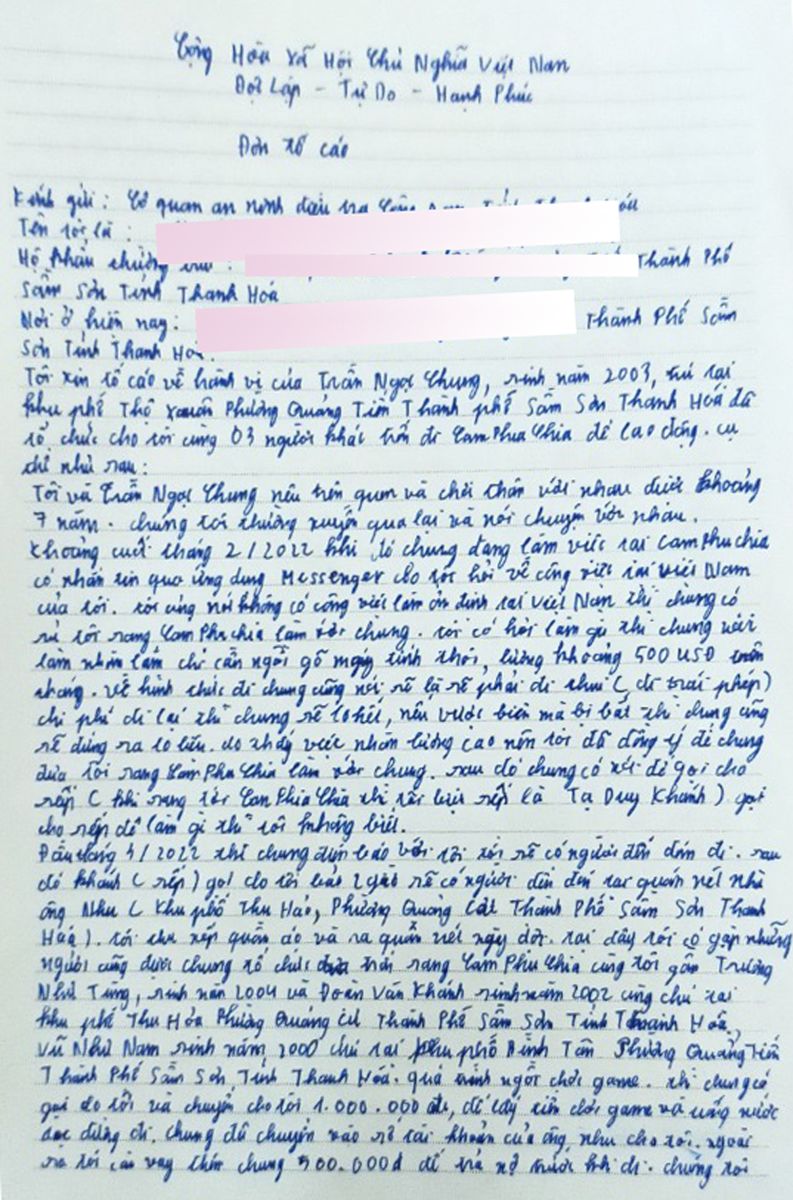 Cộng Hòa Xã Hội Chủ Nghĩa Việt Nam
Độc Lập - Tự Do - Hạnh Phúc
Đơn tố cáo
Kính gửi: Cơ quan an ninh điều tra Công an Tỉnh Thanh Hóa
Tên tôi là :
Hộ khẩu thường trú : Thành Phố
Sầm Sơn Tỉnh Thanh Hoá
Nơi ở hiện nay: Thành Phố Sầm
Sơn Tỉnh Thanh Hoá.
Tôi xin tố cáo về hành vi của Trần Ngọc Chung, sinh năm 2003, trú tại
khu phố Thọ Xuân Phường Quảng Tiến Thành phố Sầm Sơn Thanh Hoá đã
tổ chức cho tôi cùng 03 người khác trốn đi CamPhuChia để lao động. cụ
thể như sau:
Tôi và Trần Ngọc Chung nêu trên quen và chơi thân với nhau được khoảng
7 năm. chúng tôi thường xuyên qua lại và nói chuyện với nhau.
Khoảng cuối tháng 2/2022 khi đó chung đang làm việc tại CamPhuchia
có nhắn tin qua ứng dụng Messenger cho tôi hỏi về công việc tại việt Nam
của tôi. tôi cũng nói không có công việc làm ổn định tại Việt Nam thì chung có
rủ tôi sang CamPhuchia làm với chung. tôi có hỏi làm gì thì chung nói
làm nhàn lắm chỉ cần ngồi gõ máy tính thôi, lương khoảng 500 USD trên
tháng. về hình thức đi chung cũng nói rõ là sẽ phải đi chui (đi trái phép)
chi phí đi lại thì chung sẽ lo hết, nếu vượt biên mà bị bắt thì chung cũng
sẽ đứng ra lo liệu. do thấy việc nhàn lương cao nên tôi đã đồng ý để chung
đưa tôi sang CamPhuChia làm với chung. sau đó chung có nói để gọi cho
sếp (khi sang tới CamPhuChia thì tôi biết sếp là Tạ Duy Khánh) gọi
cho sếp để làm gì thì tôi không biết.
Đầu tháng 3/2022 thì chung điện báo với tôi sẽ có người đến đón đi. sau
đó khánh (sếp) gọi cho tôi bảo sẽ có người đến đón tại quán nét nhà
ông Như (Khu phố Thu Hảo, Phường Quảng Cư Thành Phố Sầm Sơn Thanh
Hoá). tôi thu xếp quần áo và ra quán nét ngồi đợi. tại đây tôi có gặp những
người cũng được chung tổ chức đưa trái sang CamPhuChia cùng tôi gồm Trương
Như Tùng, sinh năm 2004 và Đoàn Văn Khánh sinh năm 2002 cùng chú tại
khu phố Thu Hảo Phường Quảng Cư Thành Phố Sầm Sơn Tỉnh Thanh Hoá,
Vũ Như Nam sinh năm 2000 chú tại khu phố Bình Tân Phường Quảng Tiến
Thành Phố Sầm Sơn, Tỉnh Thanh Hoá. quá trình ngồi chơi game. thì chung có
gọi cho tôi và chuyển cho tôi 1.000.000 để lấy tiền chơi game và uống nước
dọc đường đi. chung đã chuyển vào số tài khoản của ông như cho tôi. ngoài
ra tôi còn vay thêm chung 500.000đ để trả nợ trước khi đi. chúng tôi